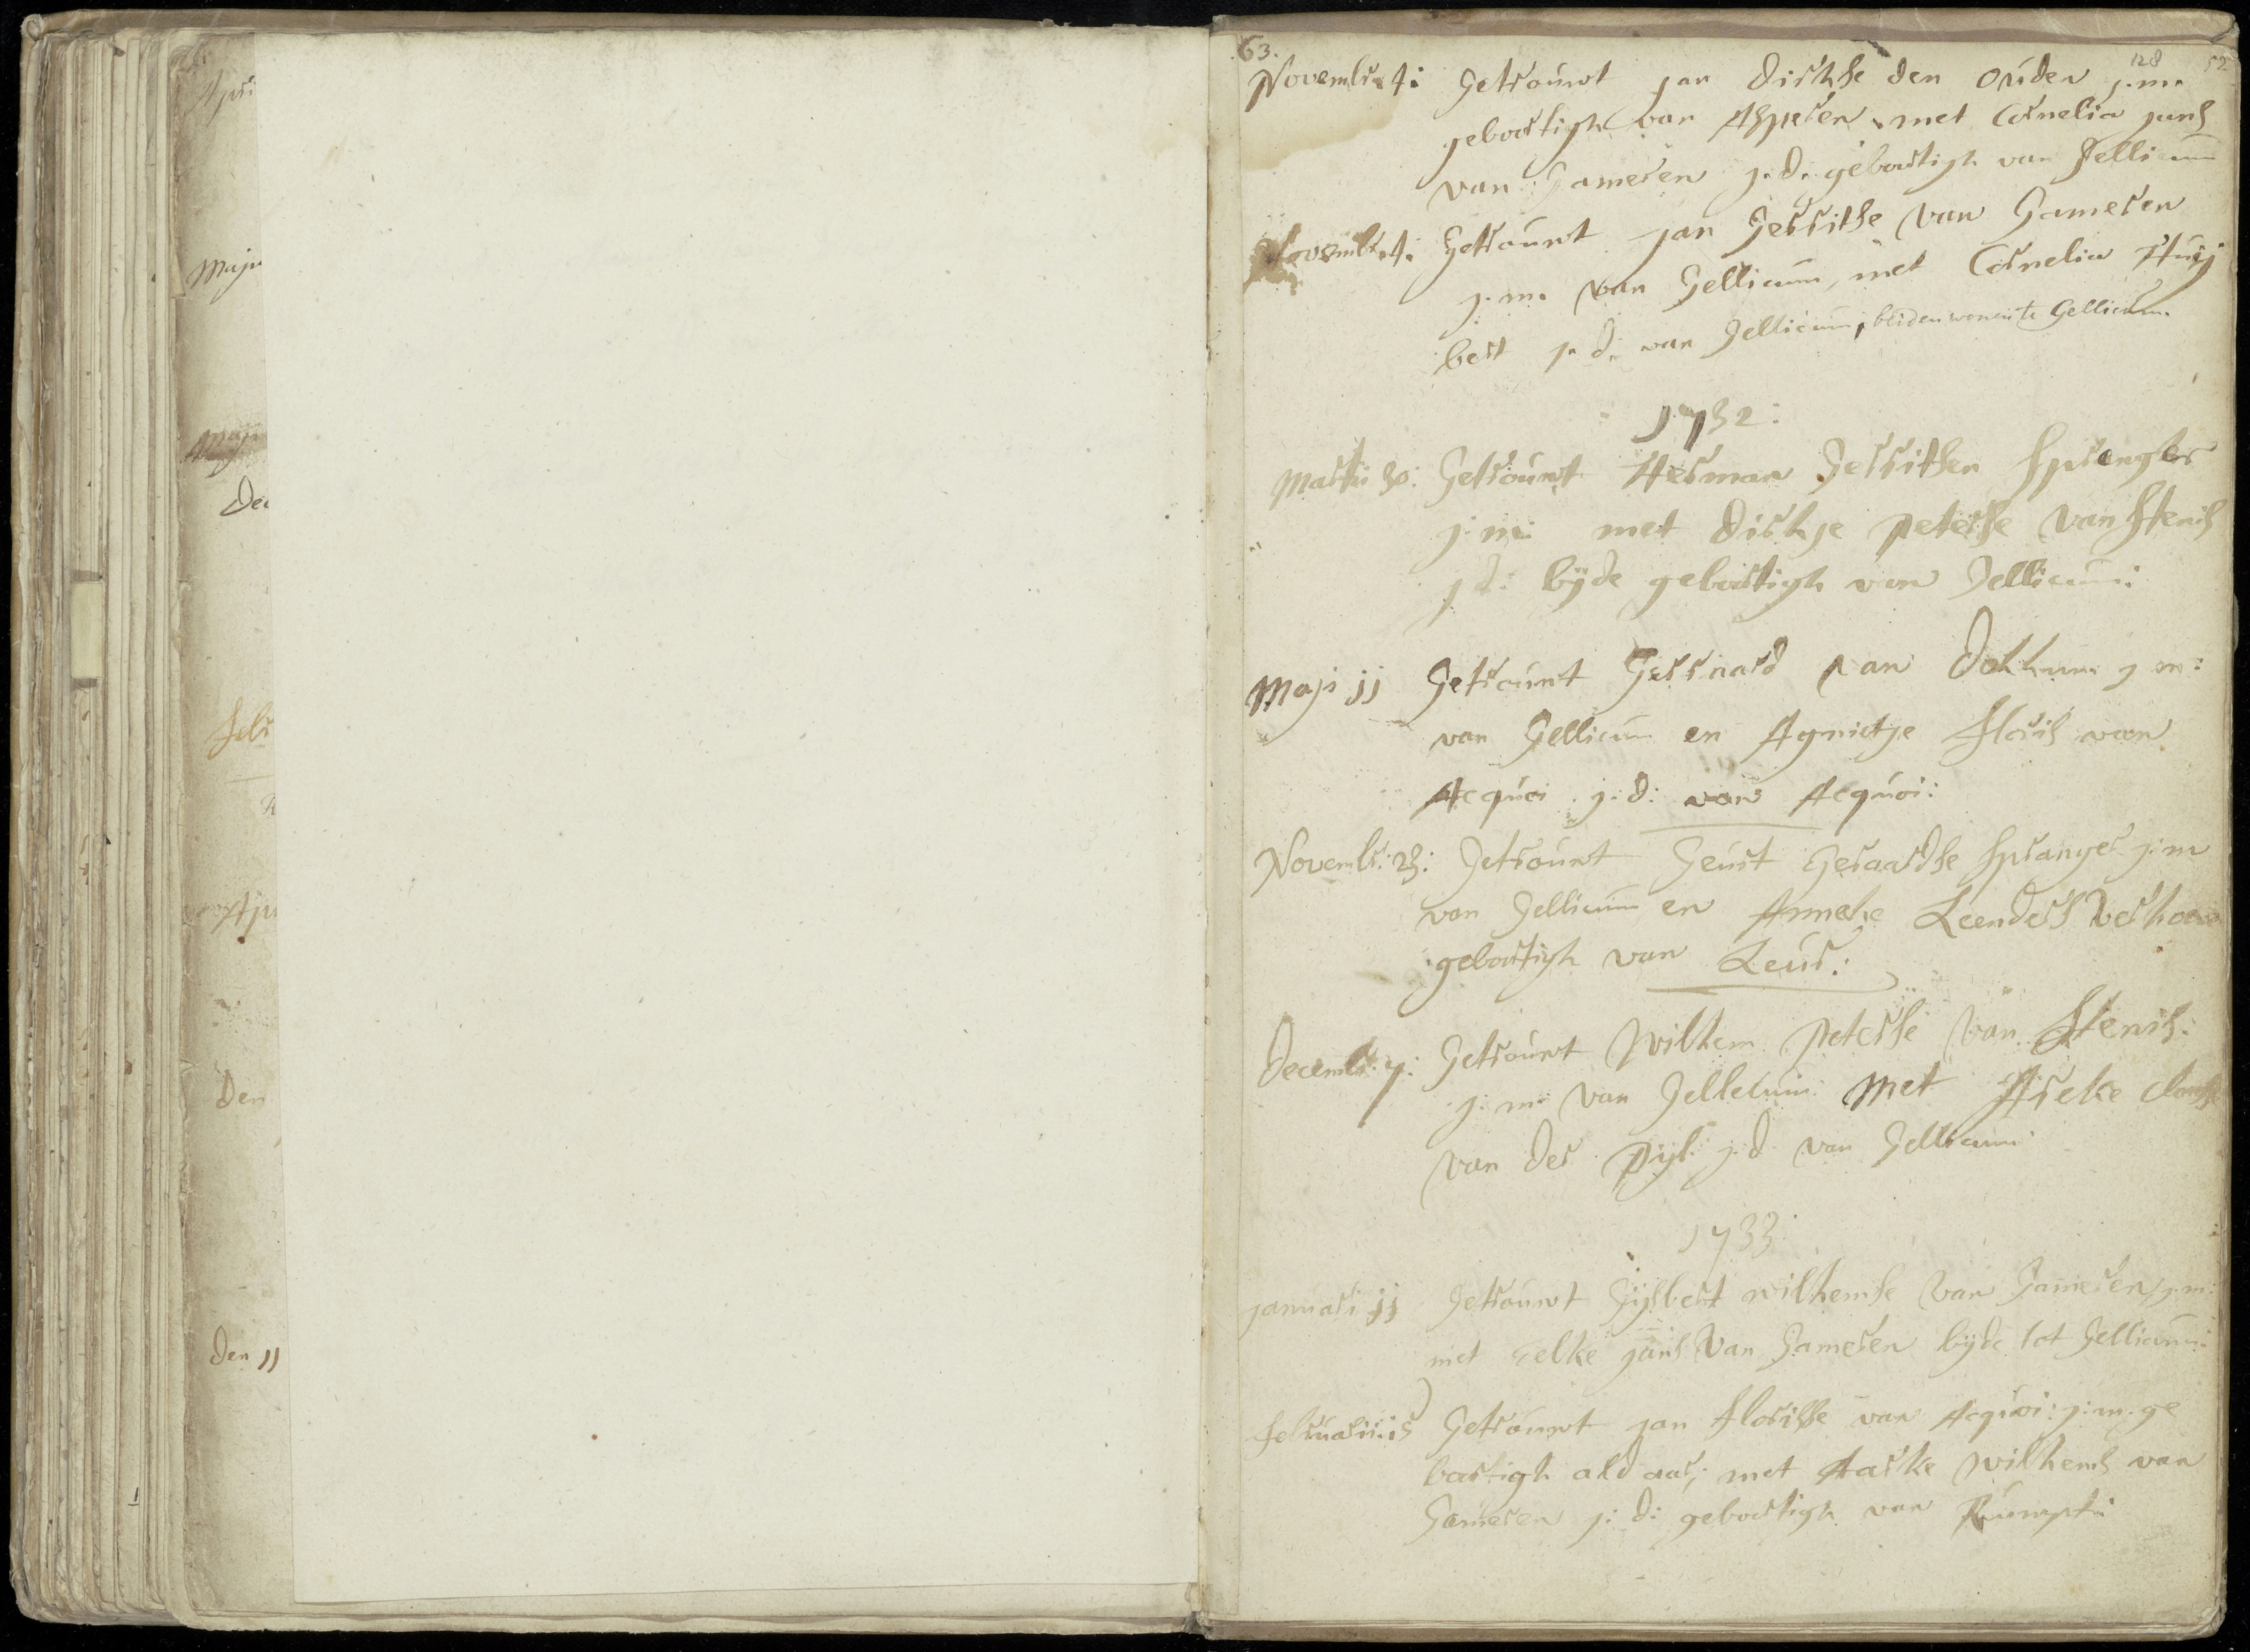 Apri
Maju
Maju
Dec
febr
Apr
Den
Den 11
63.
128
52
Novembr. 4: Getrouwt jan dirkse den ouden j.m.
geboortigh van Asperen met Cornelia jans
van Gameren j.d. geboortigh van Gellicum
Novembr. 4: Getrouwt jan Gerritse van Gameren
j.m. van Gellicum, met Cornelia Huij
bert j.d. van Gellicum, beiden wonen te Gellicum.
1732:
Martii 30: Getrouwt Herman Gerritsen Sprengler
j:m: met dirkje peterse van Stenis
j d: bÿde geboortigh van Gellicum:
Maji 11 Getrouwt Gerrnard van Dokkum j m:
van Gellicum en Agnietje floris van
Acquoi j:d: van Acquoi:
Novembr: 23: Getrouwt Geurt Geraardse Spranger j:m
van Gellicum en Anneke Leenders Verhoeve
geboortigh van Leur:
Decembr: 7: Getrouwt Wilhem peterse van Stenis:
j: m: van Gellecum: Met Areke
van der Pyl: j:d van Gellicum
1733:
januari 11 Getrouwt Gijsbert wilhemse van Gameren j.m:
met Eelke jans van Gameren bÿde tot Gellicum:
februarii: 15 Getrouwt jan florisse van Acquoi: j:m. ge
bortigh aldaar; met Aarke wilhems van
Gameren j: d: geboortigh van Rumpt: